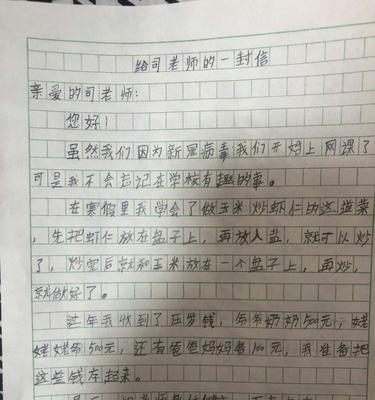 给司老师的一封信
亲爱的司老师:
您好!
虽然我们因为新冠病毒我们开始上网课了
可是我不会忘记在学校有趣的事。
在寒假里我学会了做玉米炒虾仁的这道菜
,先把虾仁放在盘子上,再放入盐,就可以炒
了,炒完后就和玉米放在一个盘子上,再炒,
就做好了。
过年我收到了压岁钱,爷爷奶奶500元,姥
姥姥爷500元,还有爸爸妈妈每100元,我准备把
这些钱存起来。